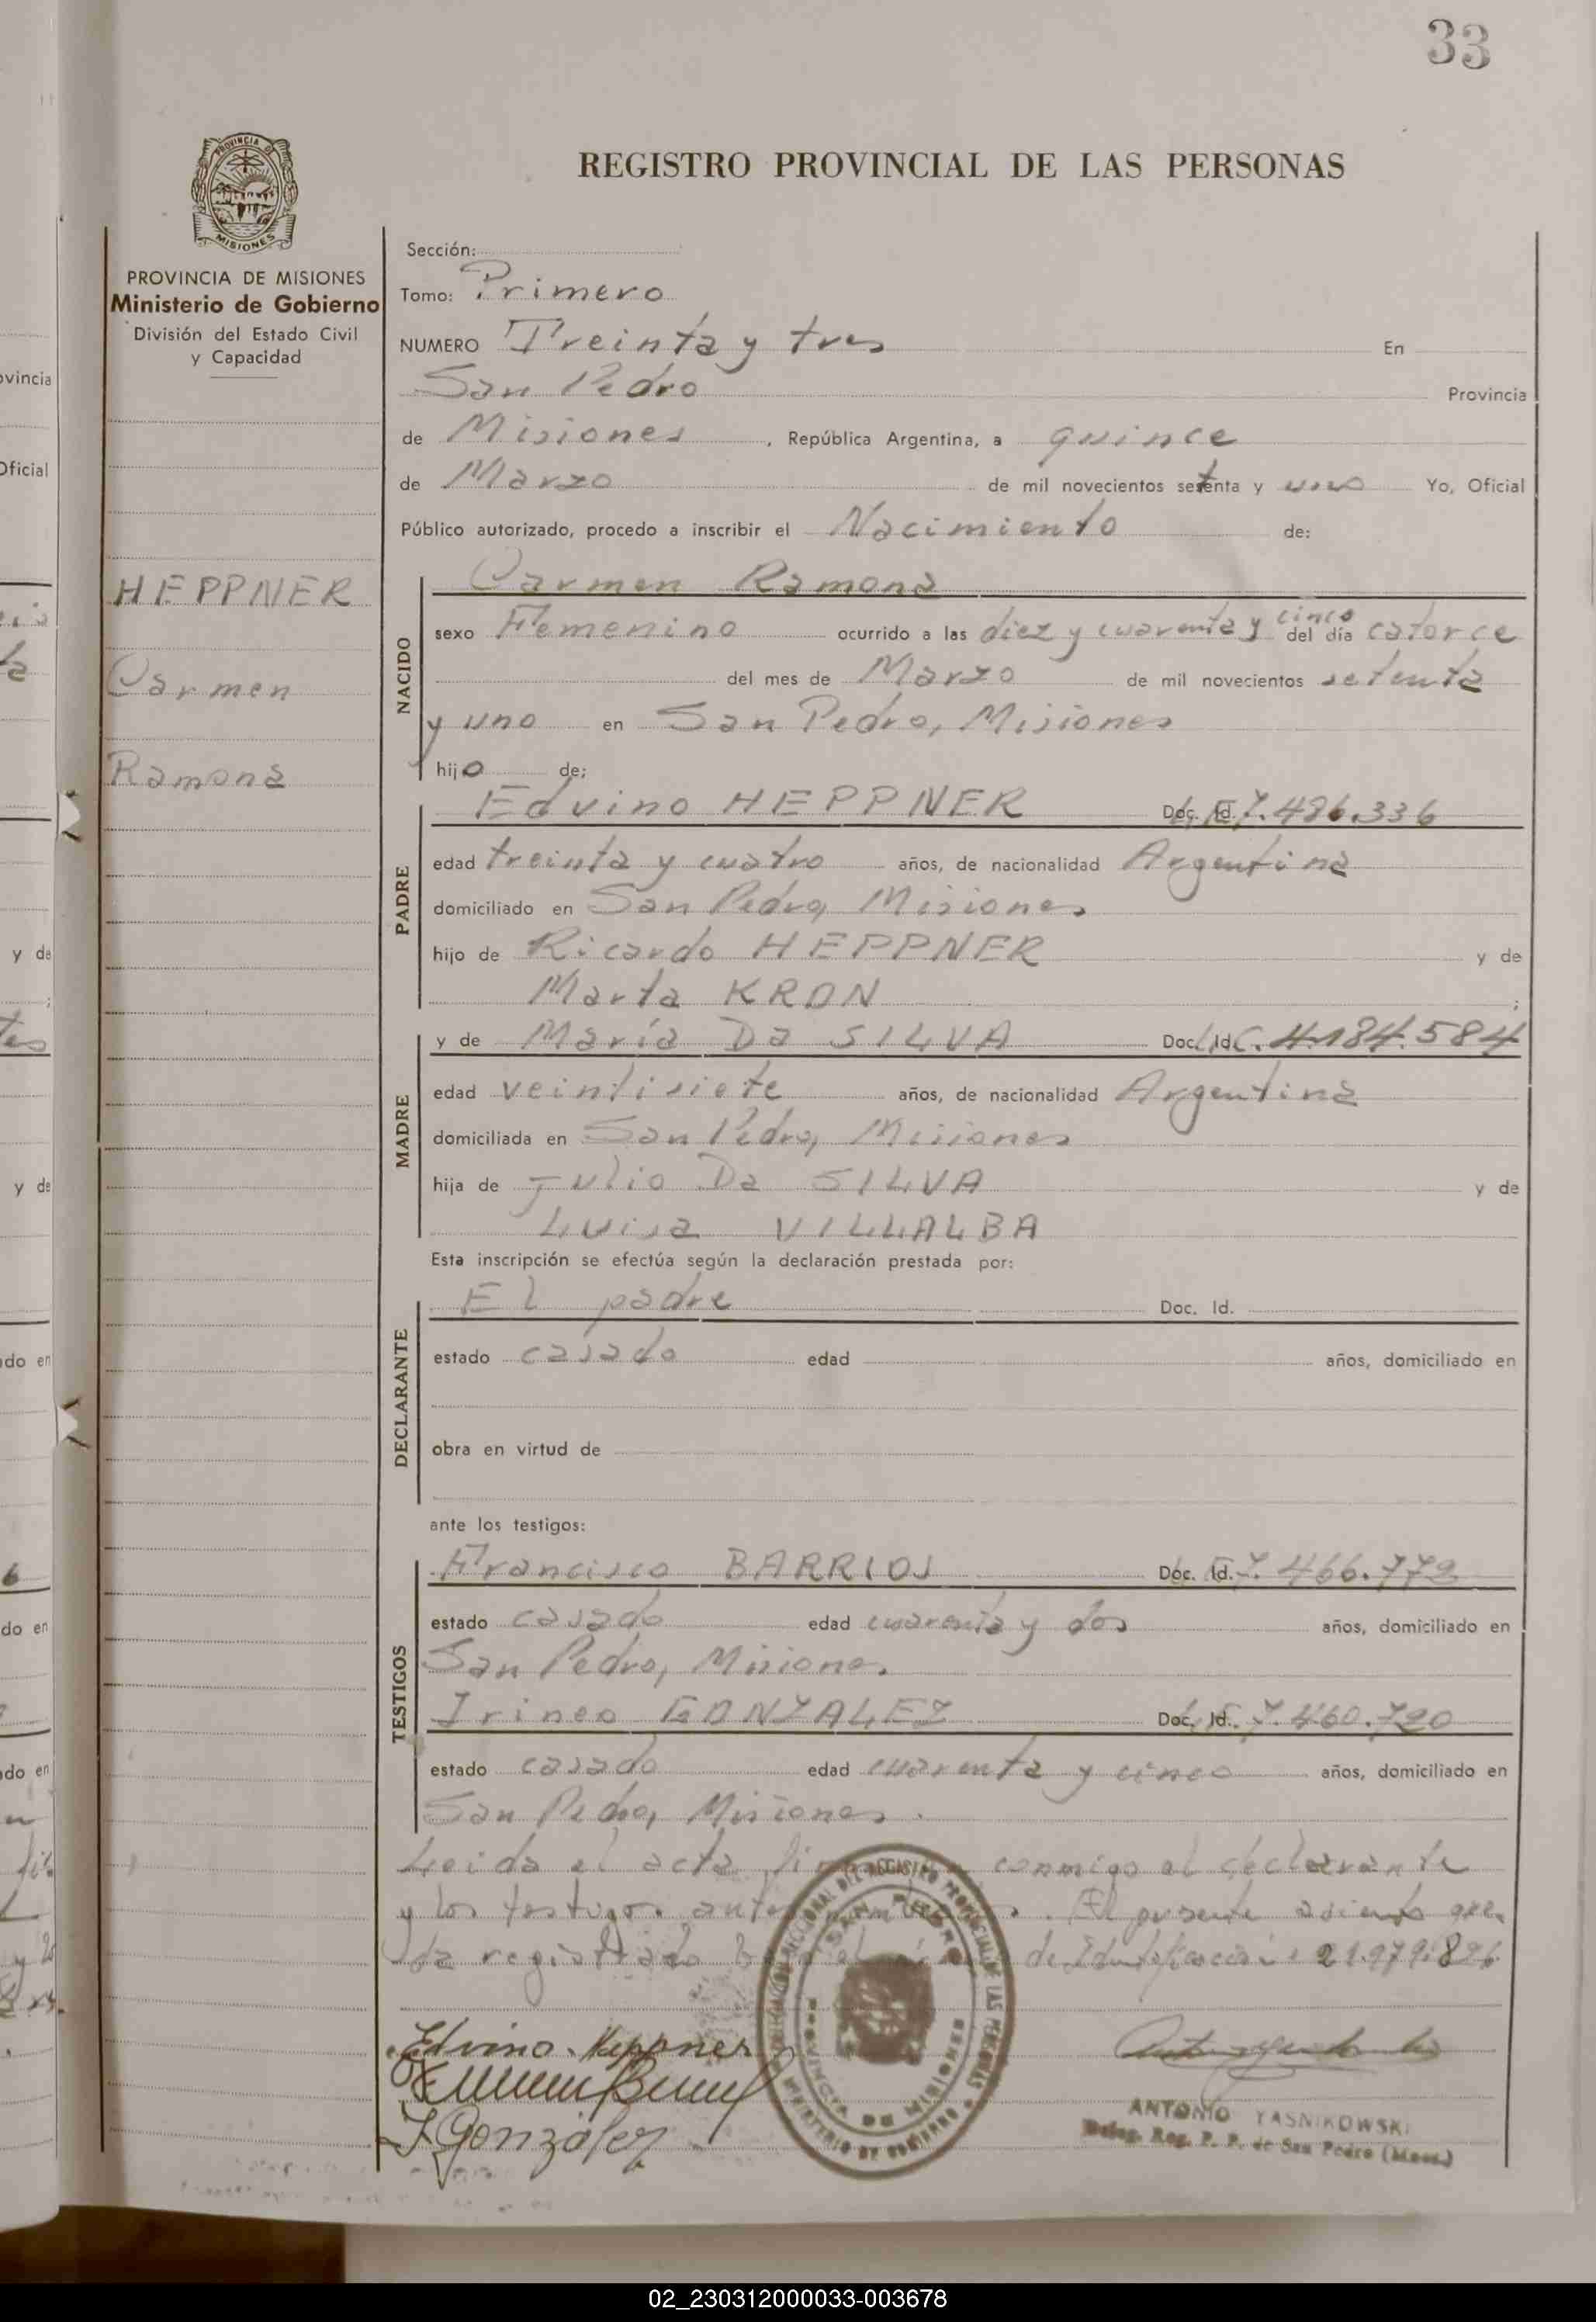 33
PROVINCIA DE
MISIONES
REGISTRO PROVINCIAL DE LAS PERSONAS
PROVINCIA DE MISIONES
Ministerio de Gobierno
División del Estado Civil
y Capacidad
Sección:
Tomo: Primero
NUMERO Treinta y tres En
San Pedro Provincia
de Misiones, República Argentina, a quince
de Marzo de mil novecientos setenta y uno Yo, Oficial
Público autorizado, procedo a inscribir el Nacimiento de:
HEPPNER
Carmen
Ramona
NACIDO
Carmen Ramona
sexo Femenino ocurrido a las diez y cuarenta y cinco del día catorce
del mes de Marzo de mil novecientos setenta
y uno en San Pedro, Misiones
hijo de:
PADRE
Edvino HEPPNER Doc. Id. 7.486.336
edad treinta y cuatro años, de nacionalidad Argentina
domiciliado en San Pedro, Misiones
hijo de Ricardo HEPPNER y de
Marta KRON ;
MADRE
y de María Da SILVA Doc. Id. L.C. 4.184.584
edad veintisiete años, de nacionalidad Argentina
domiciliada en San Pedro, Misiones
hija de Julio Da SILVA y de
Luisa VILLALBA
Esta inscripción se efectúa según la declaración prestada por:
DECLARANTE
El padre Doc. Id.
estado casado edad años, domiciliado en
obra en virtud de
ante los testigos:
TESTIGOS
Francisco BARRIOS Doc. Id. 7.466.772
estado casado edad cuarenta y dos años, domiciliado en
San Pedro, Misiones
Irineo GONZALEZ Doc. Id. 7.460.720
estado casado edad cuarenta y cinco años, domiciliado en
San Pedro, Misiones.
Leida el acta conmigo el declarante
y los testigos. El presente asiento que-
da registrado de Identificación: 21.979.896
Edvino Heppner
I Gonzalez
SAN PEDRO
PROVINCIA DE MISIONES
MINISTERIO DE GOBIERNO
ANTONIO YASNIKOWSKI
Deleg. Reg. P. P. de San Pedro (Mnes.)
02_230312000033-003678